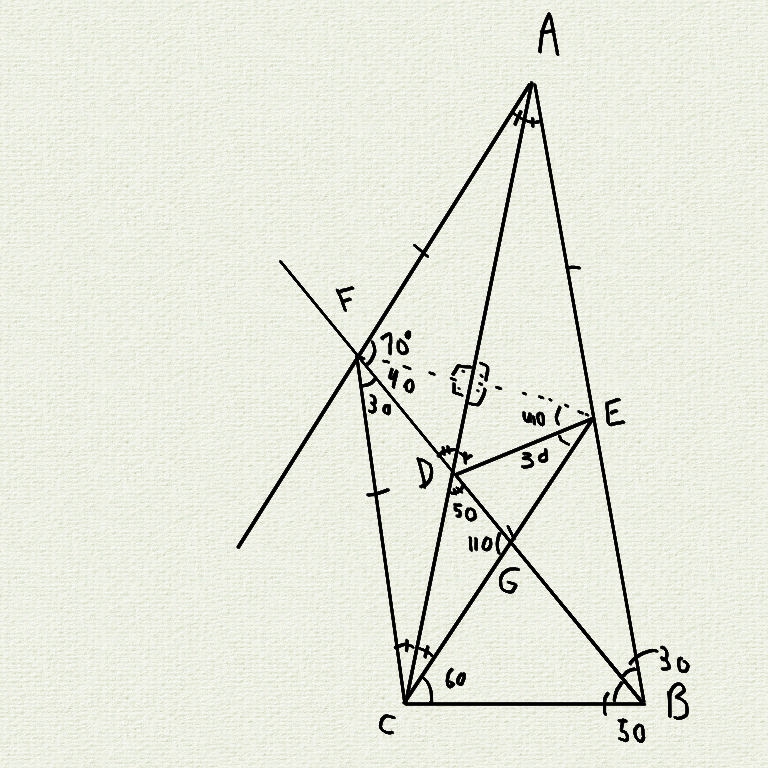 A
F
70°
40
30
E
40
30
D
50
110
G
60
30
C
50
B